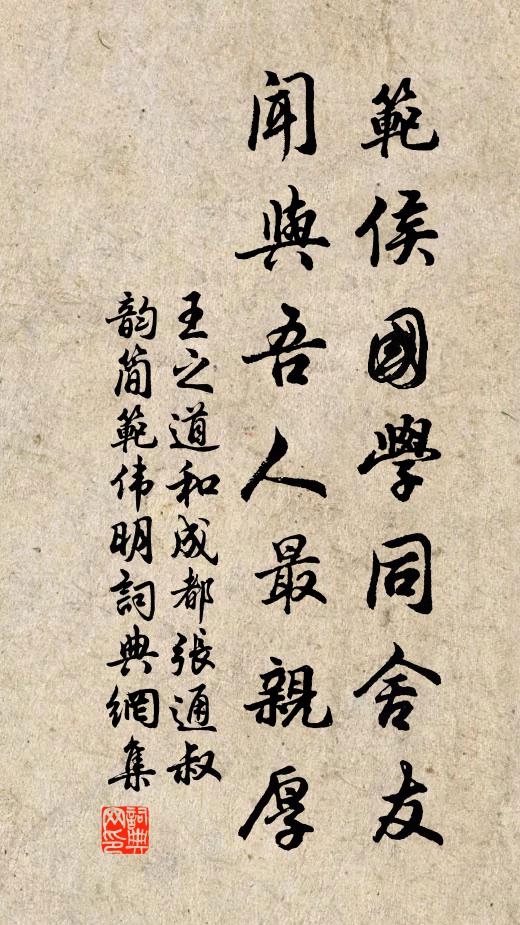 範侯國學同舍友
聞與吾人最親厚
王之道和成都張通叔
韵简範伟明詞典網集
詞典網印